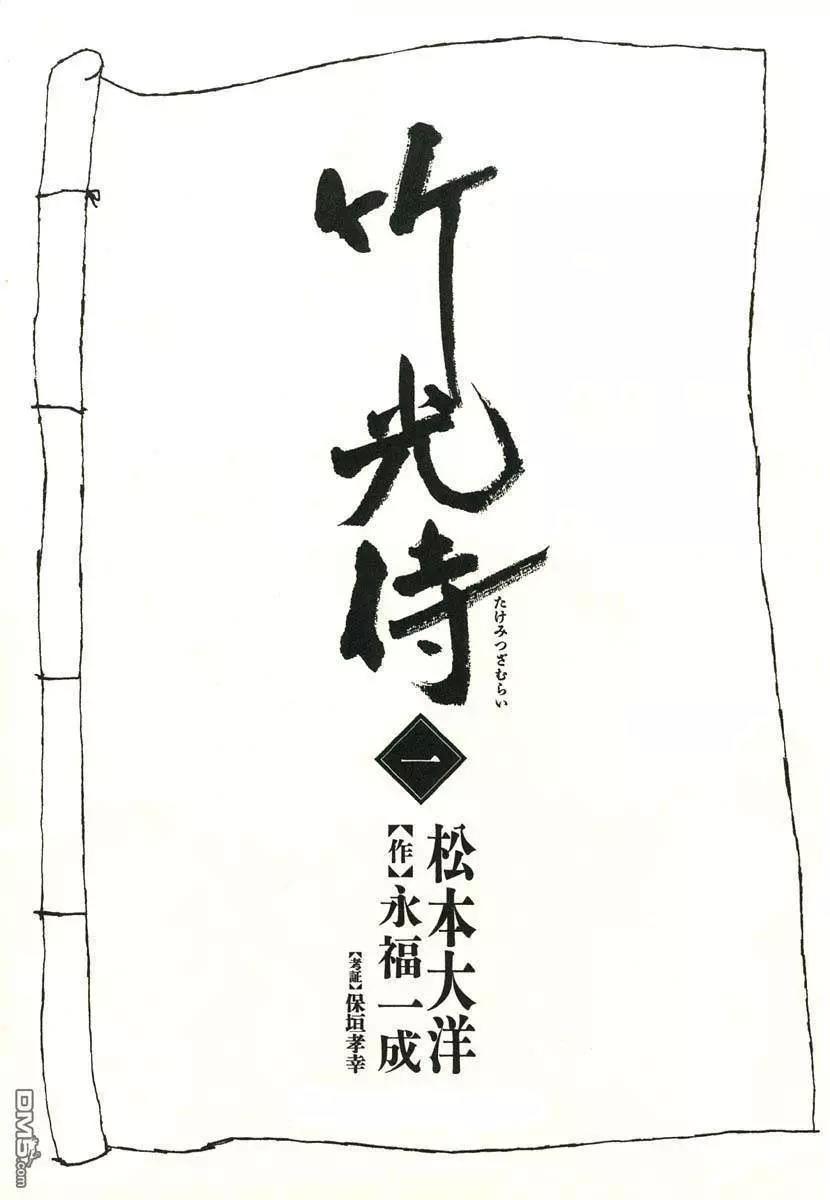 竹光侍
たけみつざむらい
一
松本大洋
【作】永福一成
【考証】保垣孝幸
DM5.com